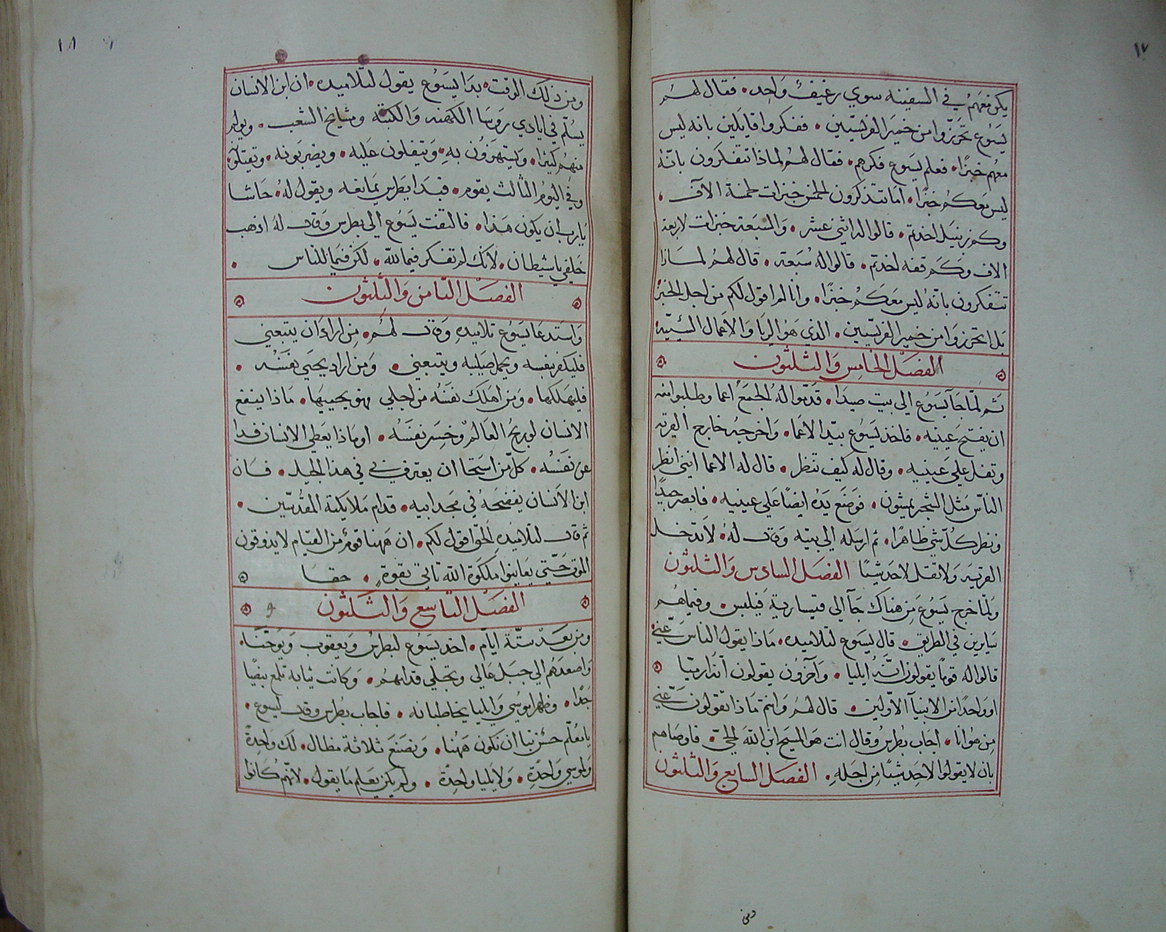 ١٧
يكن معهم في السفينه سوي رغيف واحد • فقال لهم
يسوع تحرزوا من خمير الفريسيين • ففكروا قايلين بانه ليس
معهم خبزا • فعلم يسوع فكرهم • فقال لهم لماذا تتفكرون بانه
ليس معكم خبزا • اما تتذكرون الخمس خبزات خمسة الاف •
وكم زنبيل اخذتم • قالوا له اثني عشر • والسبعة خبزات لاربعة
الاف وكم قفه اخذتم • قالوا له سبعة • قال لهم لماذا
تتفكرون بانه ليس معكم خبزا • وانا لم اقول لكم من اجل الخبز
بل تحترزوا من خمير الفريسيين • الذي هو الريا والاعمال السيية
الفصل الخامس والثلثون
ثم لما جا يسوع الي بيت صيدا • قدموا له الجمع اعما وطلبوا منه
ان يفتح عينيه • فاخذ يسوع بيد الاعما • واخرجه خارج القريه
وتفل علي عينيه • وقال له كيف تنظر • قال له الاعما انني انظر
الناس مثل الشجر يمشون • فوضع يده ايضا علي عينيه • فابصر جيدا
ونظر كل شي ظاهرا • ثم ارسله الي بيته وقال له • لا تدخل
القريه ولا تقل لاحد شيئا الفصل السادس والثلثون
ولما خرج يسوع من هناك جا الي قيسارية فيلبس • وفيما هم
سايرين في الطريق • قال يسوع لتلاميده • ماذا يقول الناس عني
قالوا له قوما يقولون انك ايليا • واخرون يقولون انك ارميا
او واحد من الانبيا الاولين • قال لهم وانتم ماذا تقولون عني
من هو انا • اجاب بطرس وقال انت هو المسيح ابن الله الحي • فاوصاهم
بان لا يقولوا لاحد شيئا من اجله • الفصل السابع والثلثون
١٨
ومن ذلك الوقت • بدا يسوع يقول لتلاميده • ان ابن الانسان
يسلم في ايادي روسا الكهنه والكتبه ومشايخ الشعب • ويولم
منهم كثيرا • ويستهزون به • ويتفلون عليه • ويضربونه • ويقتلون
وفي اليوم الثالث يقوم • فبدا بطرس يمانعه ويقول له • حاشا
يارب ان يكون هذا • فالتفت يسوع الي بطرس وقال له اذهب
خلفي يا شيطان • لانك لم تفكر فيما لله • لكن فيما للناس •
الفصل الثامن والثلثون
واستدعا يسوع تلاميده وقال لهم • من اراد ان يتبعني
فليكفر نفسه ويحمل صليبه ويتبعني • ومن اراد يحيي نفسه •
فليهلكها • ومن اهلك نفسه من اجلي فهو يحييها • ماذا ينفع
الانسان لو ربح العالم وخسر نفسه • او ماذا يعطي الانسان فدا
عن نفسه • كل من استحا ان يعترف بي في هذا الجيل • فان
ابن الانسان يفضحه في مجد ابيه • قدام ملايكته المقدسين •
ثم قال لتلاميده الحق اقول لكم • ان ههنا قوم من القيام لا يذوقون
الموت حتي يعاينوا ملكوة الله تاتي بقوة • حقا
الفصل التاسع والثلثون
ومن بعد ستة ايام • اخد يسوع لبطرس ويعقوب ويوحنا
واصعدهم الي جبل عالي وتجلي قدامهم • وكانت ثيابه تلمع بيضا
جدا • وظهر لموسي وايليا يخاطبانه • فاجاب بطرس وقال ليسوع •
يا معلم حسن بنا ان نكون ههنا • ونصنع ثلاثة مظال • لك واحدة
ولموسي واحدة • ولايليا واحدة • ولم يكن يعلم ما يقول • لانهم كانوا